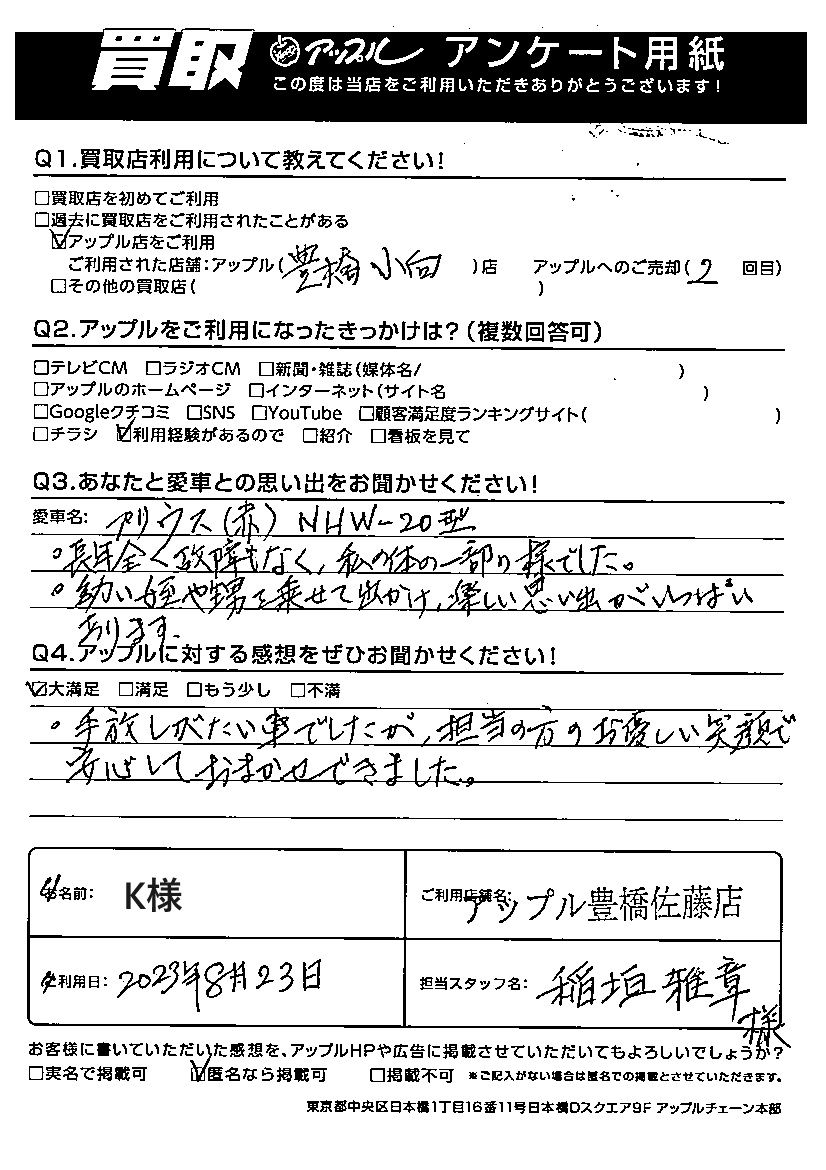 買取 アップル アンケート用紙
この度は当店をご利用いただきありがとうございます!
Q1.買取店利用について教えてください!
□買取店を初めてご利用
□過去に買取店をご利用されたことがある
☑アップル店をご利用
ご利用された店舗:アップル(豊橋小向)店 アップルへのご売却(2 回目)
□その他の買取店( )
Q2.アップルをご利用になったきっかけは?(複数回答可)
□テレビCM □ラジオCM □新聞・雑誌(媒体名/ )
□アップルのホームページ □インターネット(サイト名 )
□Googleクチコミ □SNS □YouTube □顧客満足度ランキングサイト( )
□チラシ ☑利用経験があるので □紹介 □看板を見て
Q3.あなたと愛車との思い出をお聞かせください!
愛車名: プリウス(赤) NHW-20型
。長年全く故障もなく、私の体の一部の様でした。
。幼い姪や甥を乗せて出かけ、楽しい思い出がいっぱい
あります。
Q4.アップルに対する感想をぜひお聞かせください!
☑大満足 □満足 □もう少し □不満
。手放しがたい車でしたが、担当の方のお優しい笑顔で
安心しておまかせできました。
お名前: K様
ご利用店舗名: アップル豊橋佐藤店
ご利用日: 2023年8月23日
担当スタッフ名: 稲垣雅章様
お客様に書いていただいた感想を、アップルHPや広告に掲載させていただいてもよろしいでしょうか?
□実名で掲載可 ☑匿名なら掲載可 □掲載不可 ※ご記入がない場合は匿名での掲載とさせていただきます。
東京都中央区日本橋1丁目16番11号日本橋Dスクエア9F アップルチェーン本部